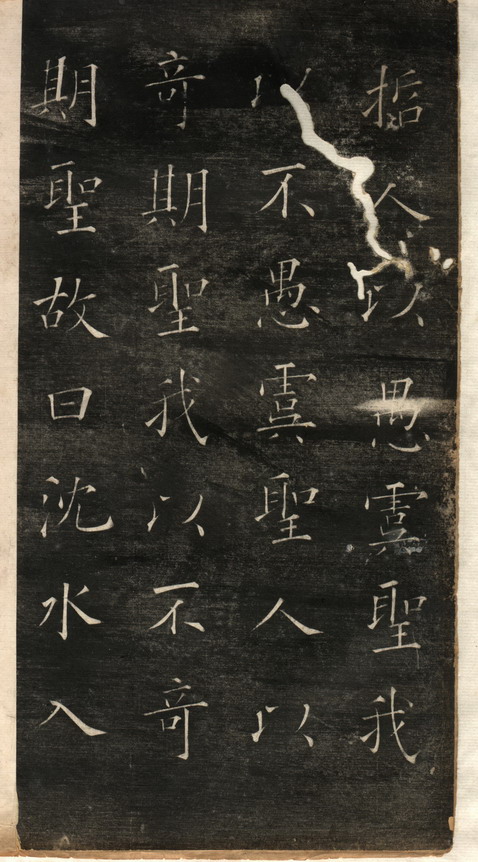 哲人以愚虞聖我
以不愚虞聖人以
竒期聖我以不竒
期聖故曰沈水入